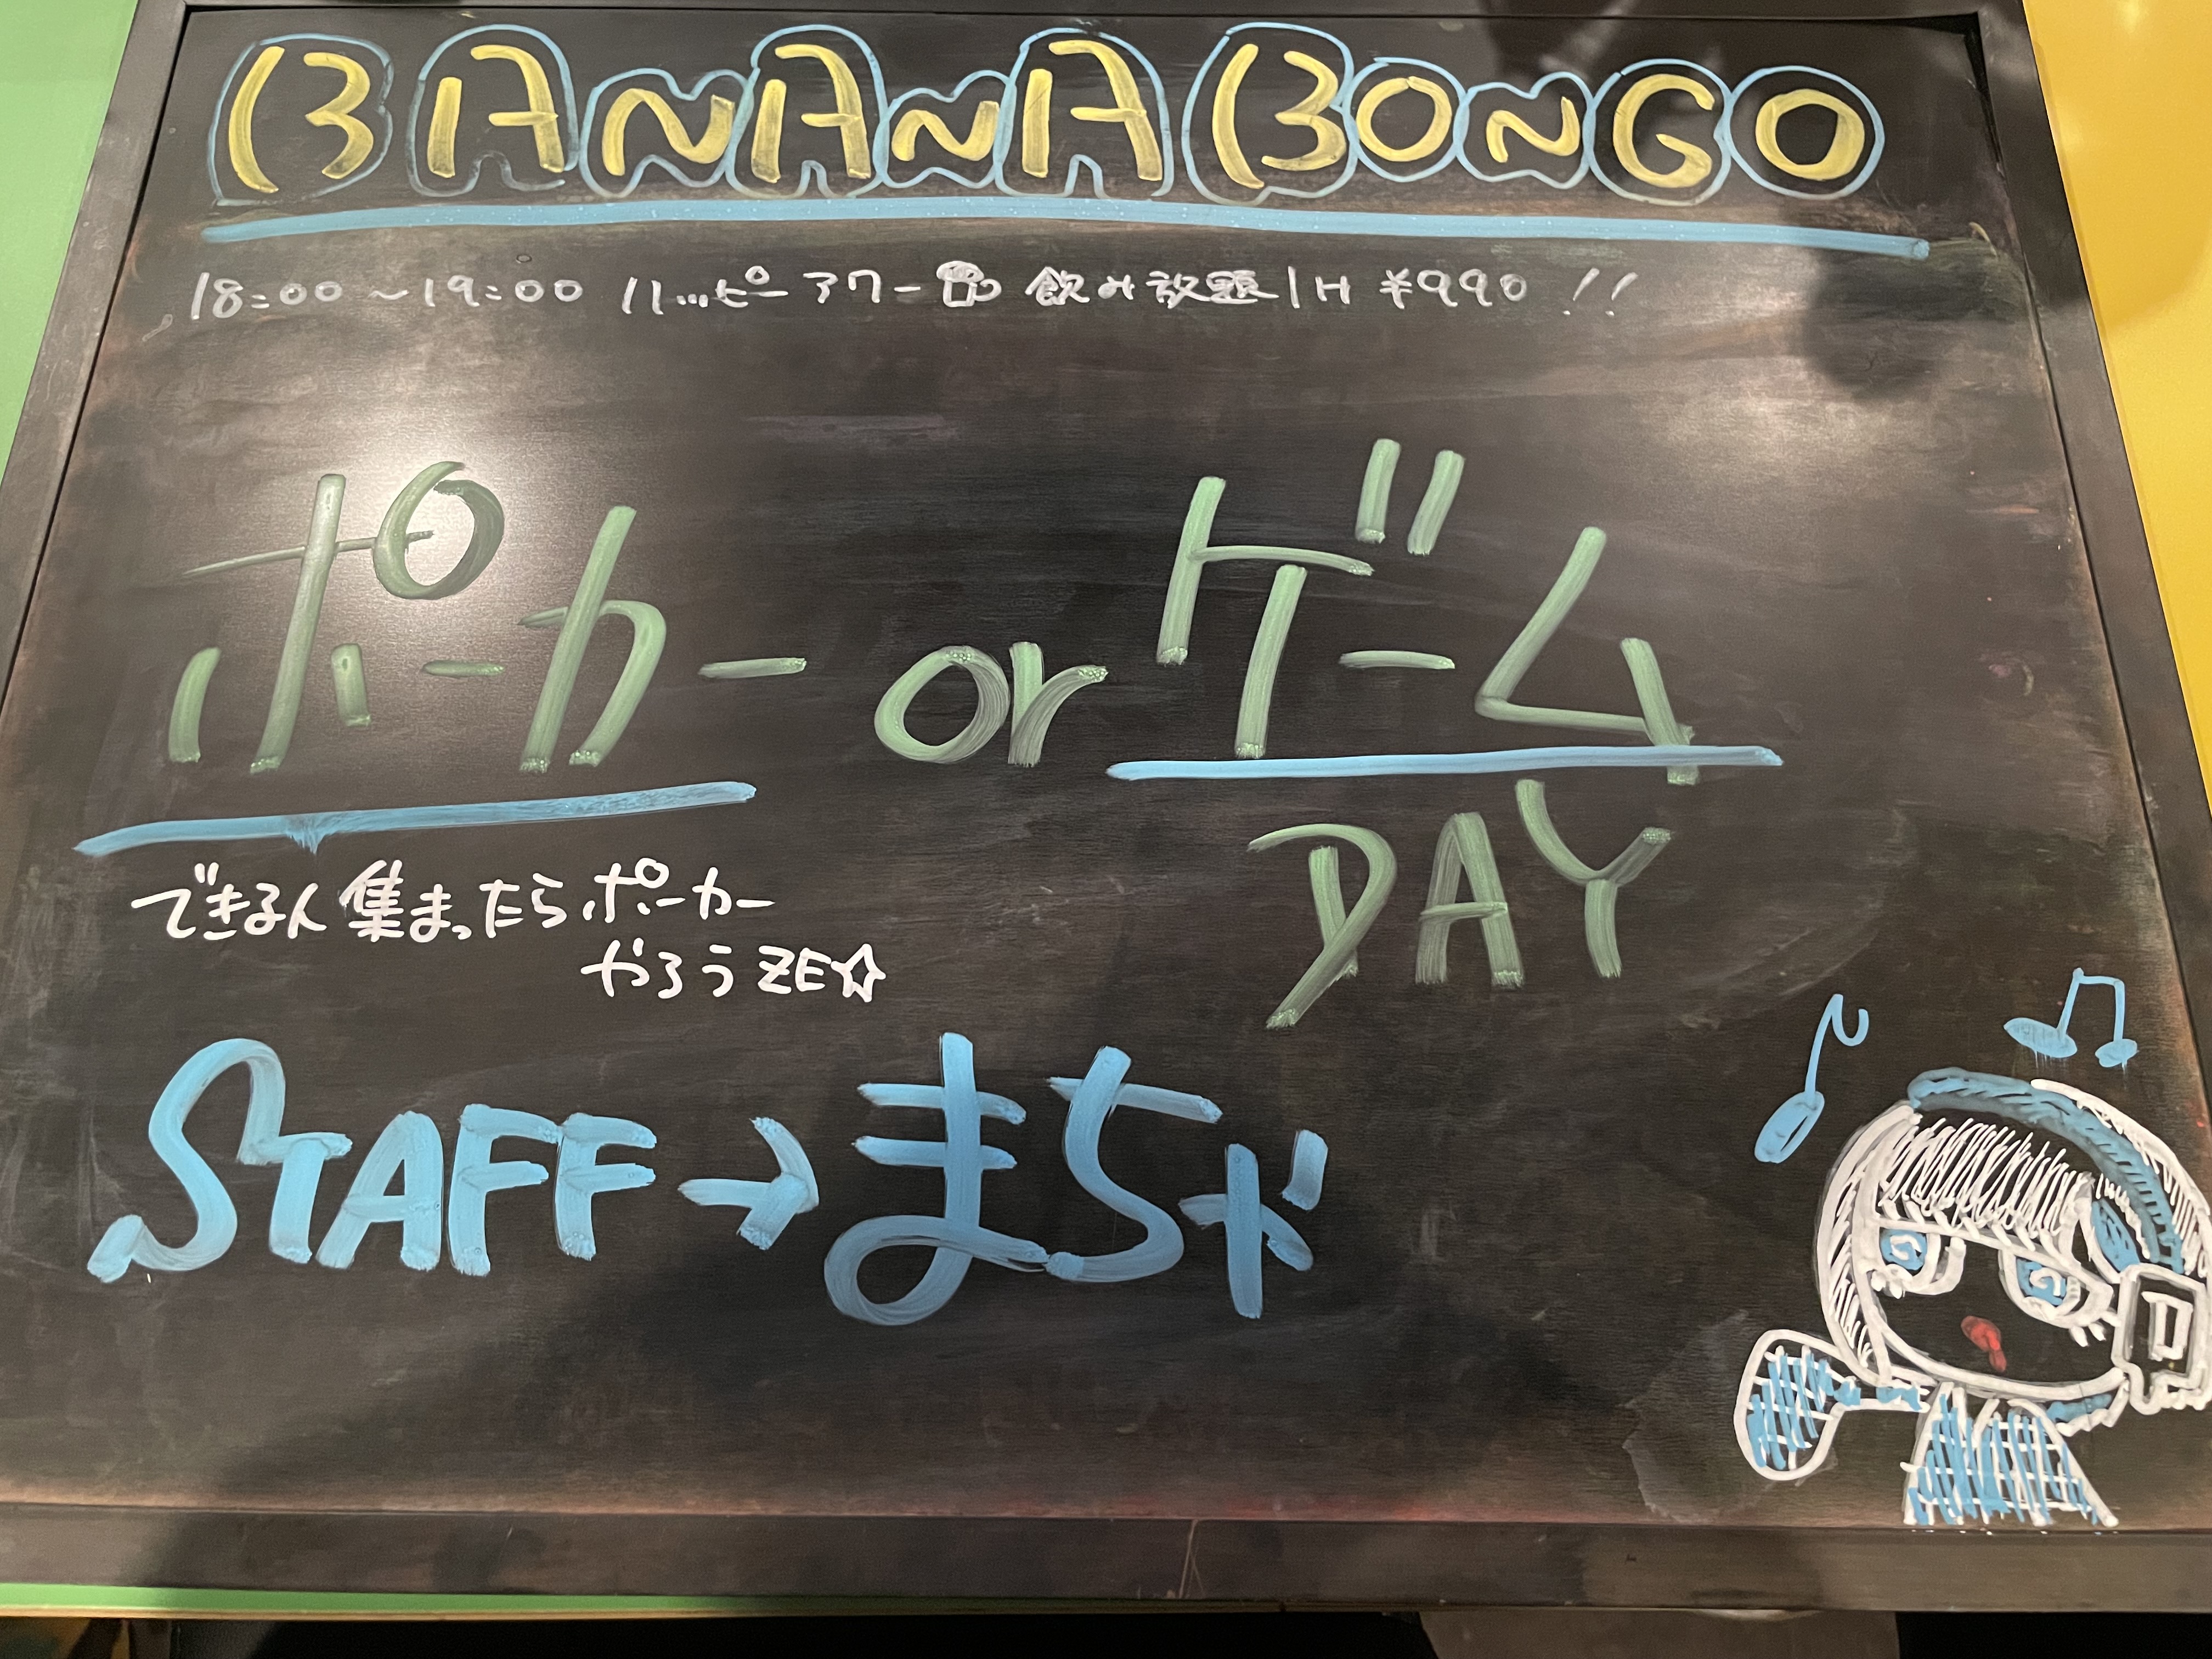 BANANA BONGO
18:00~19:00 ハッピーアワー 飲み放題1H ¥990!!
ポーカー or ゲーム
DAY
できる人集まったらポーカー
やろうZE☆
STAFF→まちゃ